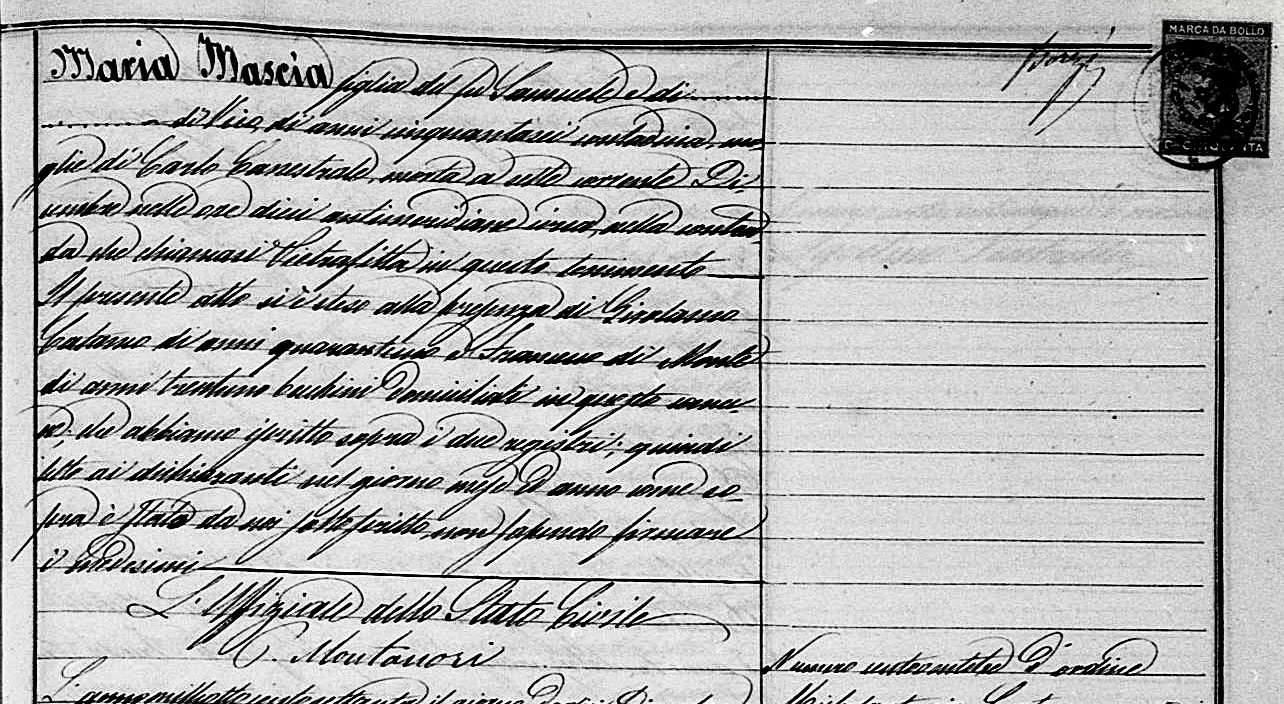 MARCA DA BOLLO
C. CINQUANTA
Maria Mascia figlia del fu Samuele e di
di Vico, di anni cinquantasei contadina, mo-
glie di Carlo Canestrale, morta a otto corrente Di-
cembre nelle ore dieci antimeridiane circa, nella contra-
da che chiamasi Pietrafitta in questo tenimento
Il presente atto si è steso alla presenza di Girolamo
Catamo di anni quarantuno e Francesco di Monte
di anni trentuno becchini domiciliati in questo comu-
ne, che abbiamo iscritto sopra i due registri; quindi
letto ai dichiaranti nel giorno mese ed anno come so-
pra è stato da noi sottoscritto, non sapendo firmare
i medesimi
L'Uffiziale dello Stato Civile
C. Montanori
Numero d'ordine
L'anno milleottocentosettanta il giorno dodici